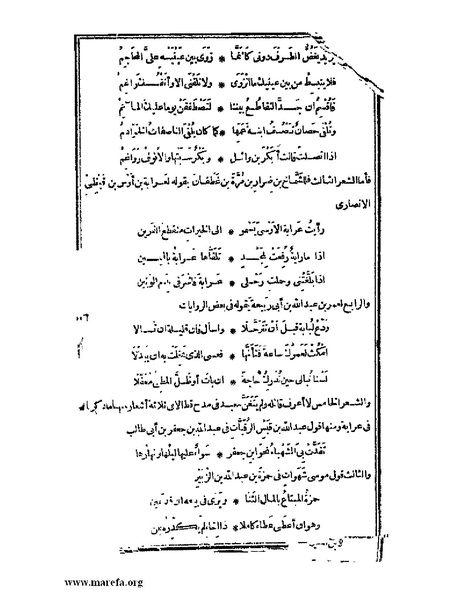 يزيد يغض الطرف دوني كأنما * زوى بين عينيه علي المحاجم
فلا ينبسط من بين عينيك ما انزوى * ولا تلقني الا وأنفك راغم
فأقسم ان جد التقاطع بيننا * لتصطفقن يوما عليك المآتم
وتلقى حصان تنصف ابنة عمها * كما كان يلقى الناصفات الخوادم
اذا اتصلت قالت أبكر بن وائل * وبكر سبتها والأنوف رواغم
فأما الشعر الثالث فللشماخ بن ضرار بن مرة بن غطفان بقوله لعرابة بن أوس بن قيظي
الانصاري
رأيت عرابة الأوسي يسمو * الى الخيرات منقطع القرين
اذا ما راية رفعت لمجد * تلقاها عرابة باليمين
اذا بلغتني وحملت رحلي * عرابة فاشرقي بدم الوتين
والرابع لعمر بن عبد الله بن أبي ربيعة بقوله في بعض الروايات
ودع لبابة قبل أن تترحلا * واسأل فان قليلة ان تسألا
امكث لعمرك ساعة فتأنها * فعسى الذي بخلت به ان يبذلا
لسنا نبالي حين ندرك حاجة * ان بات أو ظل المطي معقلا
والشعر الخامس لا أعرف قائله ولم يتغن معبد في مدح قط الا في ثلاثة أشعار
في عرابة ومنها قول عبد الله بن قيس الرقيات في عبد الله بن جعفر بن أبي طالب
تقدت بي الشهباء نحو ابن جعفر * سواء عليها ليلها ونهارها
والثالث قول موسى شهوات في حمزة بن عبد الله بن الزبير
حمزة المبتاع بالمال الثنا * ويرى في بيعه ان قد غبن
وهو ان أعطى عطاء كاملا * ذا اخاء لم يكدره بمن
www.marefa.org